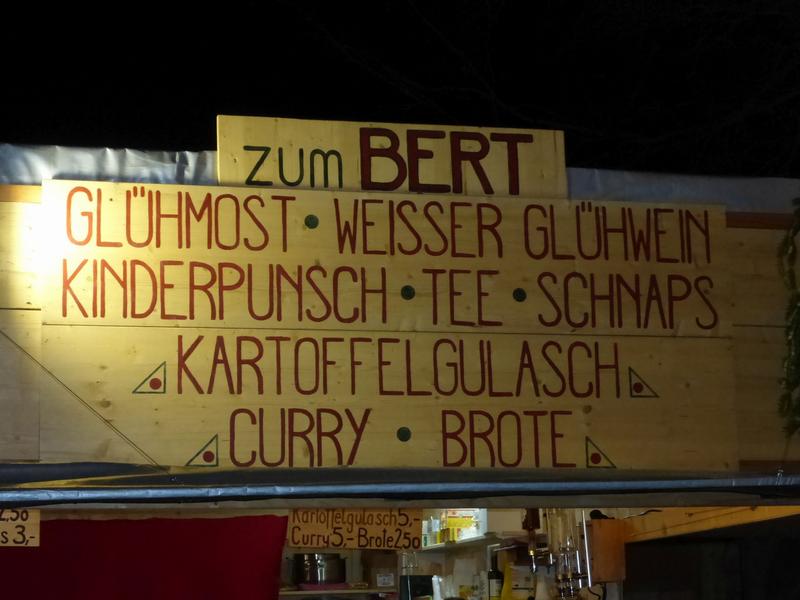 zum BERT
GLÜHMOST • WEISSER GLÜHWEIN
KINDERPUNSCH • TEE • SCHNAPS
KARTOFFELGULASCH
CURRY • BROTE
2,50
s 3,-
Kartoffelgulasch 5,-
Curry 5,- Brote 2,50